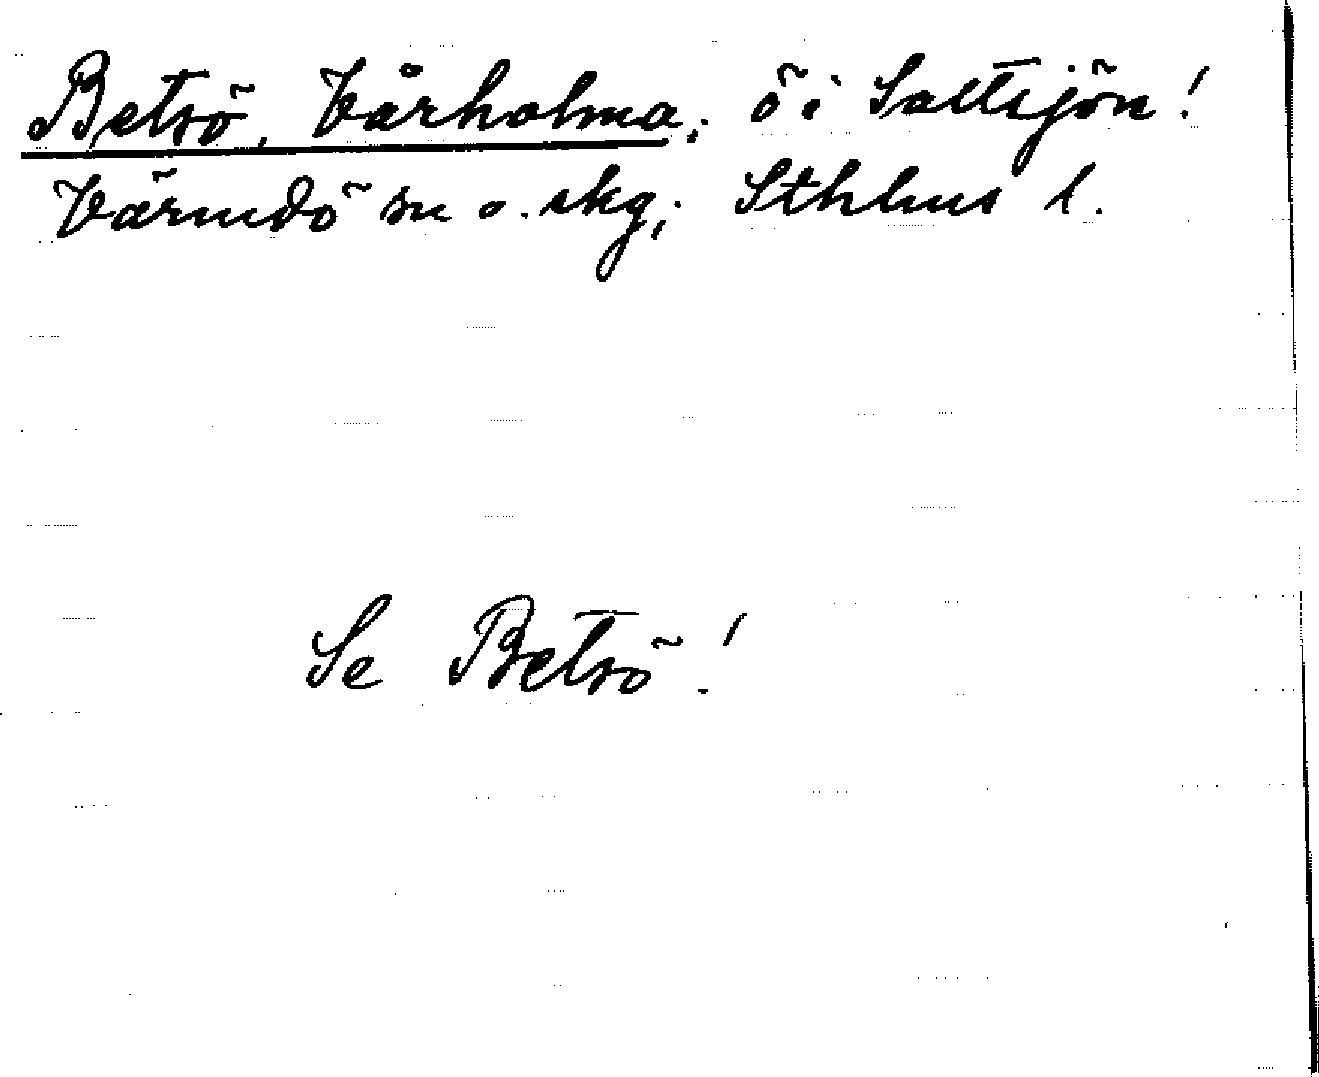 Betsö, Vårholma; ö i Saltsjön!
Värmdö sn o. skg; Sthlms l.
Se Betsö!